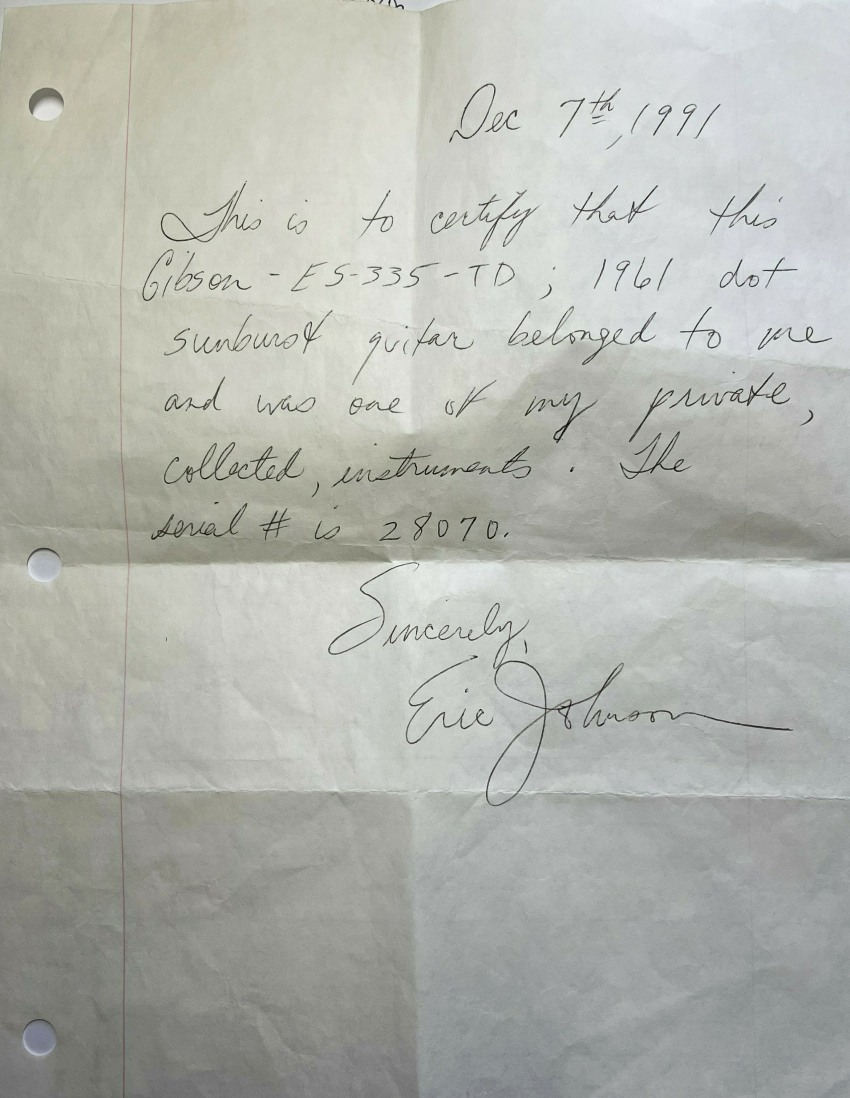 Dec 7th, 1991
This is to certify that this
Gibson - ES-335-TD ; 1961 dot
sunburst guitar belonged to me
and was one of my private,
collected, instruments. The
serial # is 28070.
Sincerely,
Eric Johnson